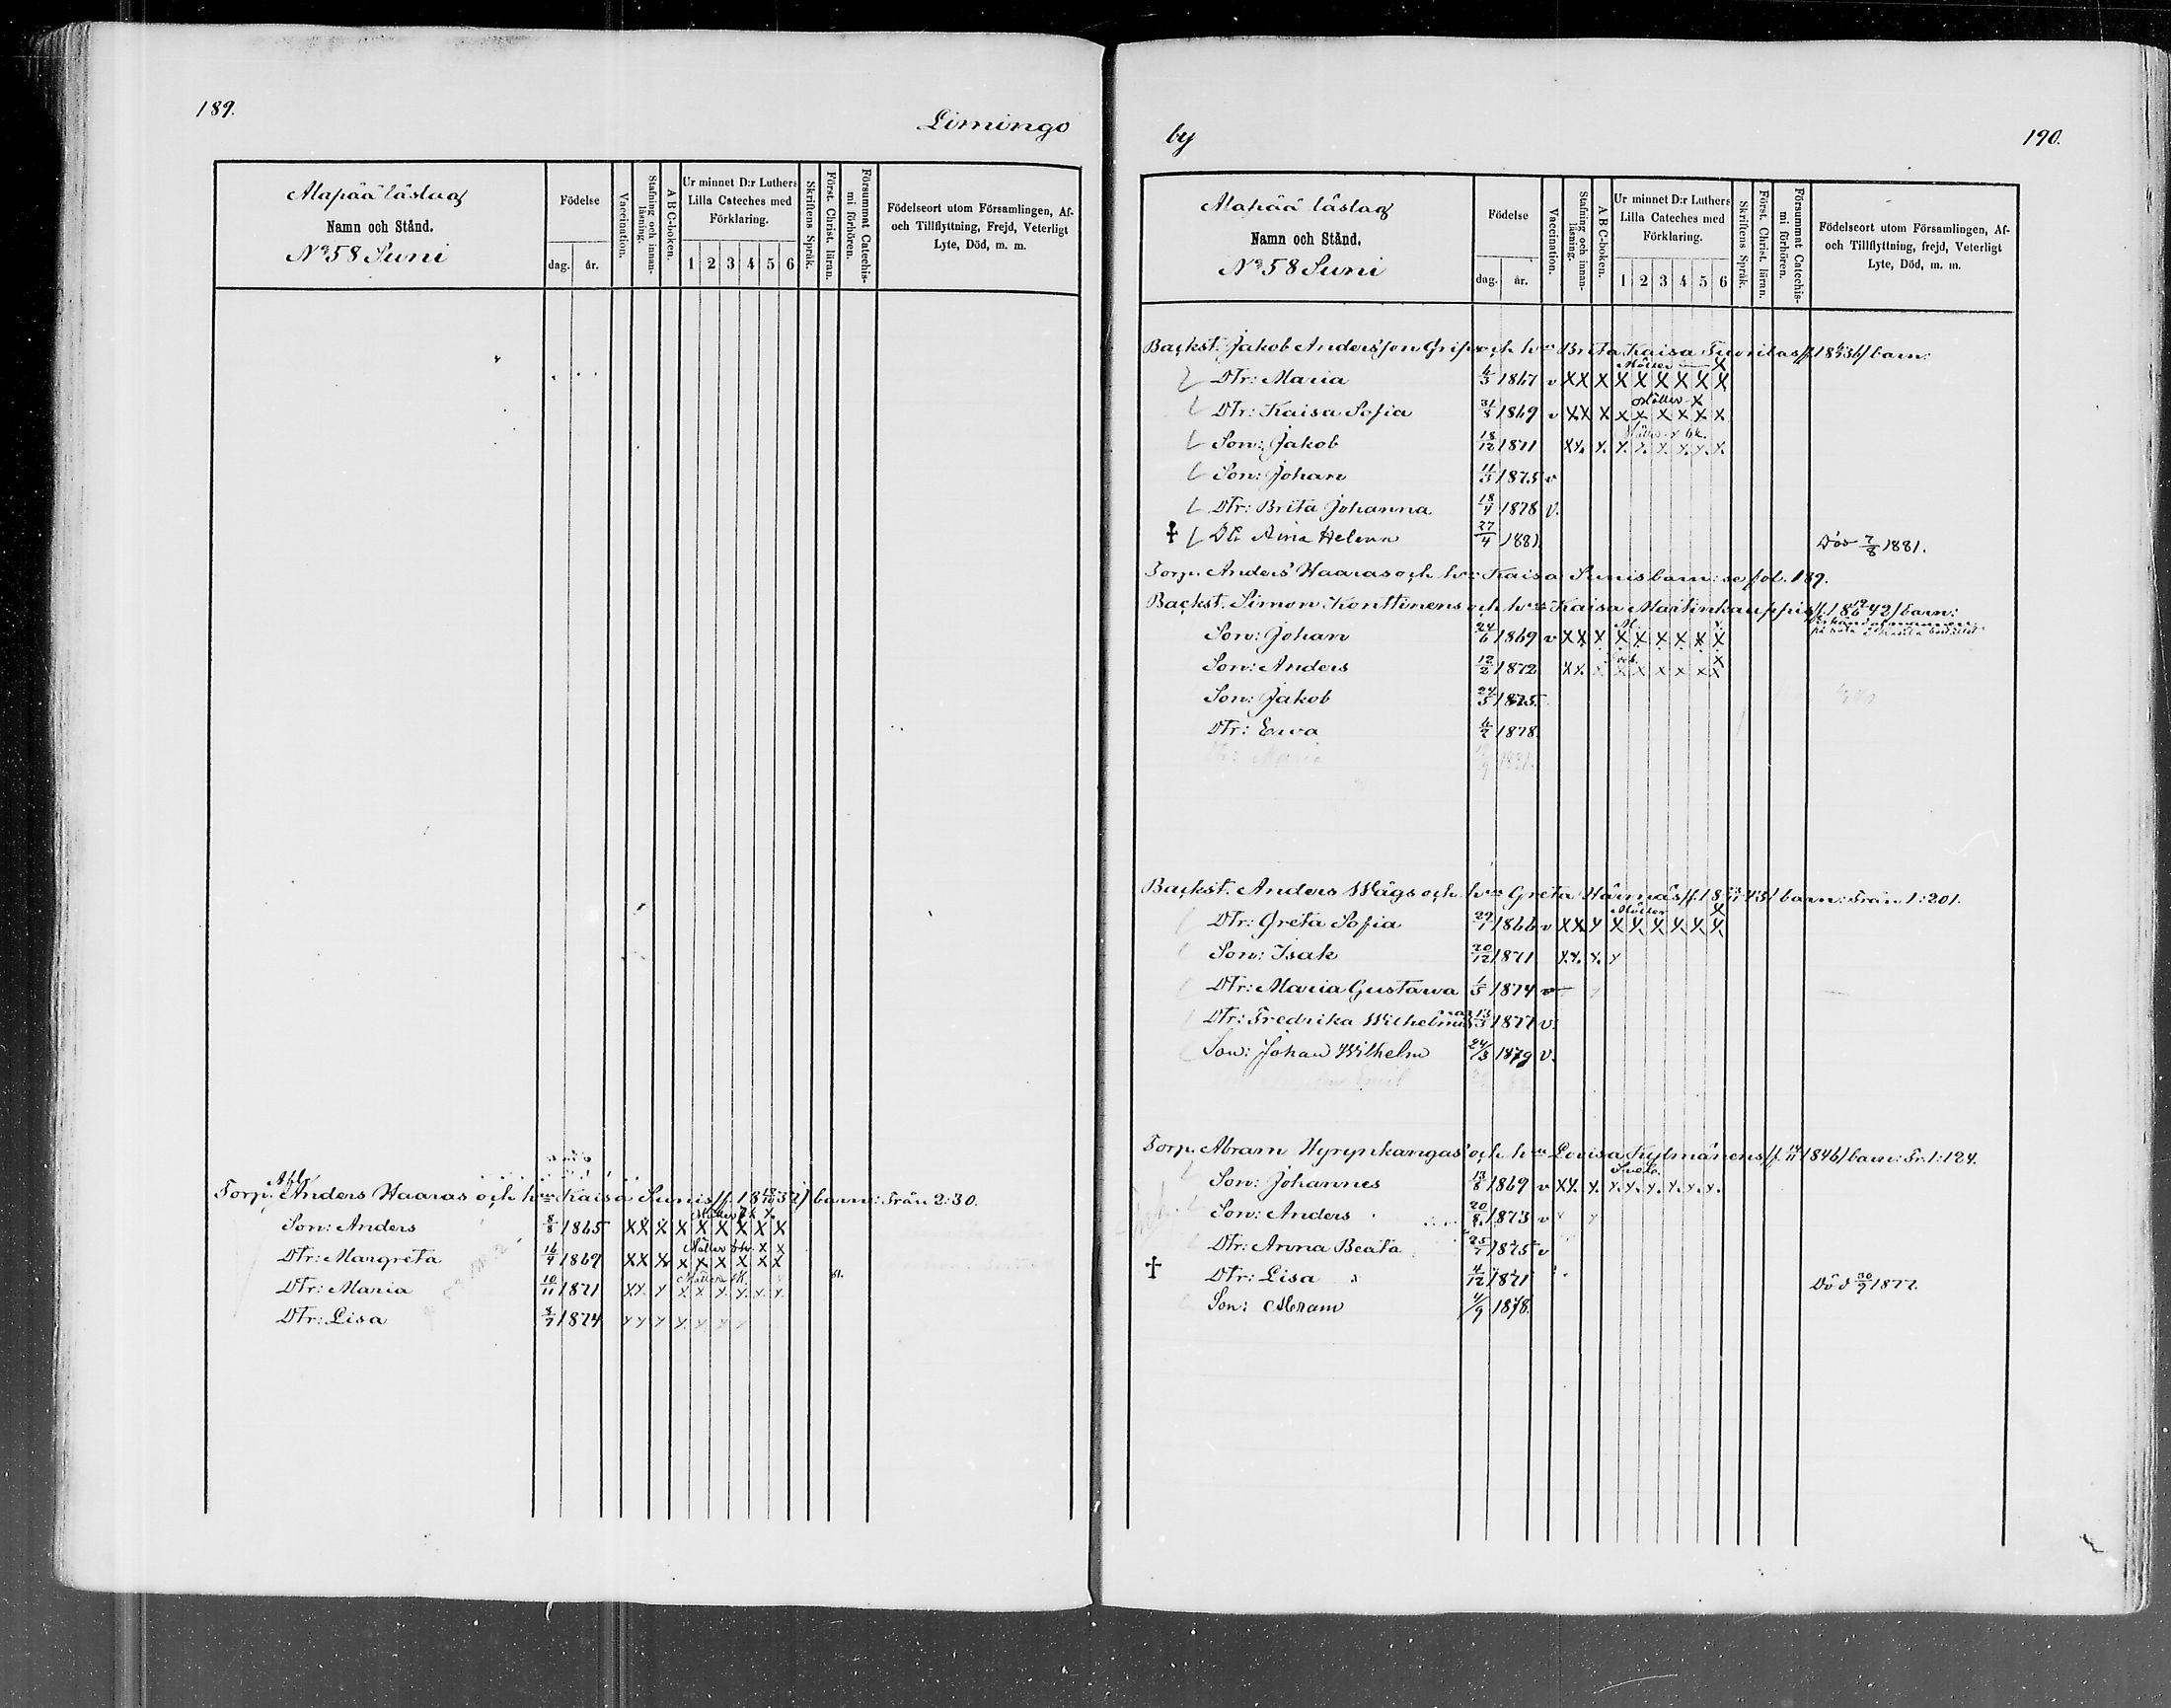 189.
Limingo
Alapää läslag
Namn och Stånd.
No 58 Suni
Födelse
dag. år.
Vaccination.
Stafning och innanläsning.
A B C-boken.
Ur minnet D:r Luthers
Lilla Cateches med
Förklaring.
1 2 3 4 5 6
Skriftens Språk.
Först. Christ. läran.
Försummat Catechismi förhören.
Födelseort utom Församlingen, Af-
och Tillflyttning, Frejd, Veterligt
Lyte, Död, m. m.
Torp. Anders Haaras och h:u Kaisa Sunis barn: Från 2:30.
Son: Anders 8/8 1865 X X X X X X X X X
Dtr: Margreta 16/4 1869 X X X X X X X X X
Dtr: Maria 10/11 1871 x x x x x x x x x
Dtr: Lisa 8/7 1874 x x x x x x x
by
190.
Alapää läslag
Namn och Stånd.
No 58 Suni
Födelse
dag. år.
Vaccination.
Stafning och innanläsning.
A B C-boken.
Ur minnet D:r Luthers
Lilla Cateches med
Förklaring.
1 2 3 4 5 6
Skriftens Språk.
Först. Christ. läran.
Försummat Catechismi förhören.
Födelseort utom Församlingen, Af-
och Tillflyttning, frejd, Veterligt
Lyte, Död, m. m.
Backst. Jakob Andersson Grips och h:u Brita Kaisa barn:
Möller X
Dtr: Maria 6/3 1867 v X X X X X X X X X
Möller X
Dtr: Kaisa Sofia 31/8 1869 v X X X X X X X X X
Son: Jakob 18/12 1871 x x x x x x x x x
Son: Johan 1875 v
Dtr: Brita Johanna 18/4 1878 v.
† Dtr Aina Helena 27/4 1881. Död 7/8 1881.
Torp. Anders Haaras och h:u Kaisa Sunis barn: se fol. 189.
Backst. Simon Konttinens och h:u Kaisa Martinkauppis barn:
Son: Johan 24/6 1869 v X X X X X X X X X
Son: Anders 12/2 1872 x x x x x x x x x
Son: Jakob 24/5 1875.
Dtr: Ewa 1878.
Backst. Anders Wägs och h:u Greta Härmäs barn: Från 1:201.
Möller X
Dtr: Greta Sofia 29/1 1866 v X X X X X X X X X
Son: Isak 20/12 1871 x x x x
Dtr: Maria Gustava 1/5 1874 v
Dtr: Fredrika Wilhelmina 13/3 1877 v.
Son: Johan Wilhelm 24/3 1879 v.
Torp. Abram Hyrynkangas och h:u Lovisa Kylmänens barn: Fr. 1:124.
Son: Johannes 13/8 1869 v x x x x x x x x x
Son: Anders 20/8 1873 v
Dtr: Anna Beata 25/7 1875 v
† Dtr: Lisa 4/12 1871 Död 30/9 1877.
Son: Abram 4/9 1878.